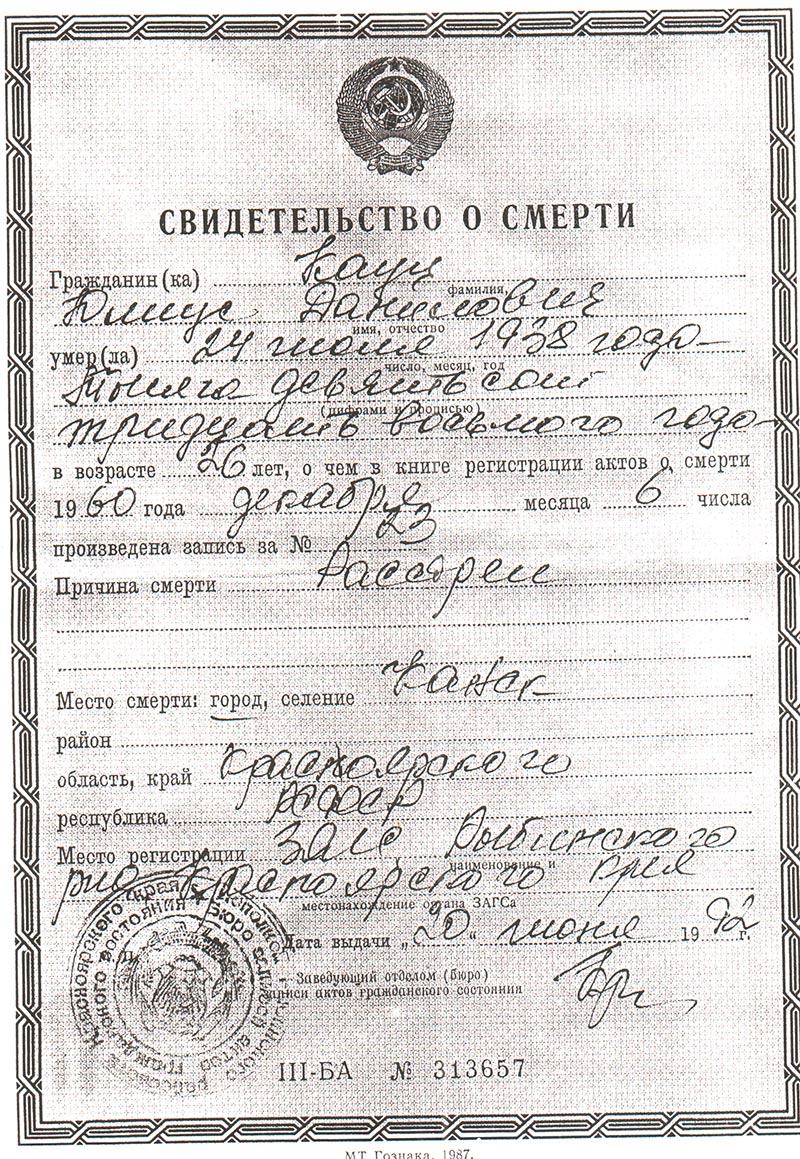 СВИДЕТЕЛЬСТВО О СМЕРТИ
Гражданин(ка) Кауц
фамилия,
Юлиус Данилович
имя, отчество
умер(ла) 24 июля 1938 года
число, месяц, год
тысяча девятьсот
(цифрами и прописью)
тридцать восьмого года
в возрасте 26 лет, о чем в книге регистрации актов о смерти
1960 года декабря месяца 6 числа
произведена запись за № 23
Причина смерти Расстрел
Место смерти: город, селение Канск
район
область, край Красноярского
республика РСФСР
Место регистрации ЗАГС Рыбинского
наименование и
рна Красноярского края
местонахождение органа ЗАГСа
Дата выдачи „20“ июня 1992 г.
Заведующий отделом (бюро)
записи актов гражданского состояния
III-БА № 313657
МТ Гознака. 1987.